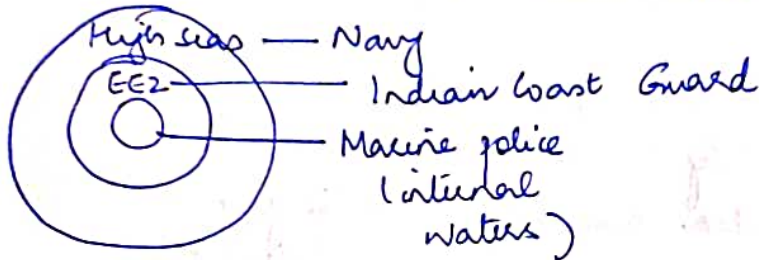 High seas — Navy
EEZ — Indian Coast Guard
Marine police
(internal
waters)